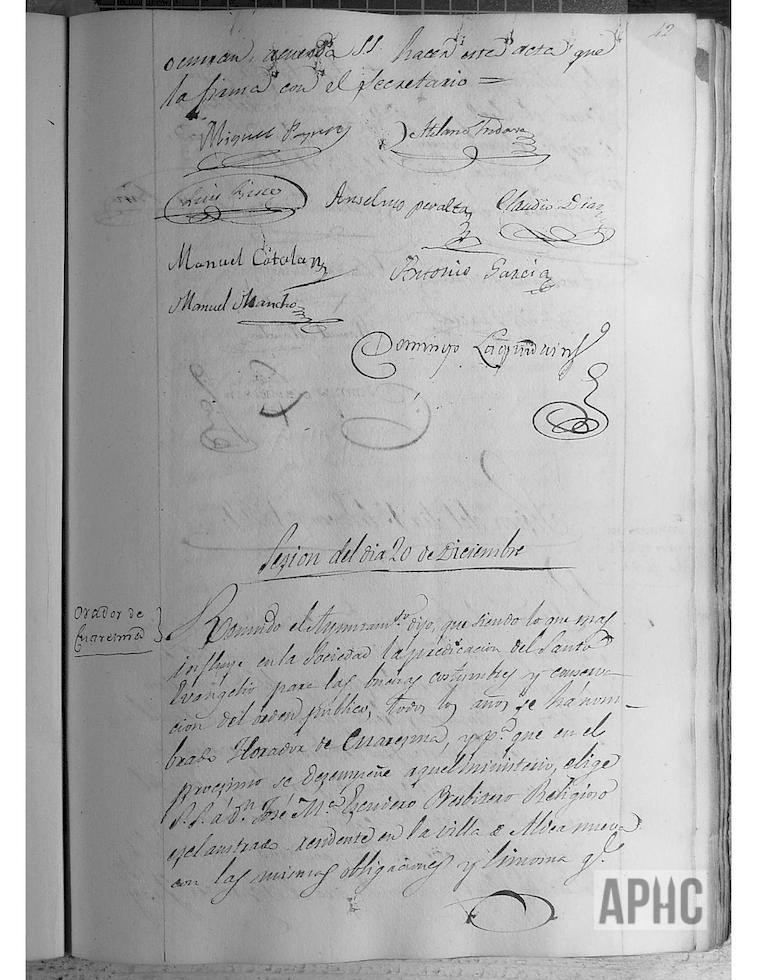 42
ocurran, acuerda SS. hacer este acta que
la firma con el secretario =
Miguel
Atilano
Luis
Anselmo peralta
Claudio Diaz
Manuel Catalan
Antonio Garcia
Manuel Mancho
Domingo
Sesion del dia 20 de Diciembre
Orador de
Cuaresma
Reunido el Ayuntam.to dijo, que siendo lo que mas
influye en la Sociedad la predicacion del Santo
Evangelio para las buenas costumbres y conserva
cion del orden publico, todos los años se há nom-
brado Horador de Cuaresma, y p.a que en el
procsimo se dezempeñe aquel ministerio, elige
S.S. á D.n José M.a Escudero Presbitero Religioso
esclaustrado rendente en la villa de Aldea nueva
con las mismas obligaciones y limosna q.e
APHC